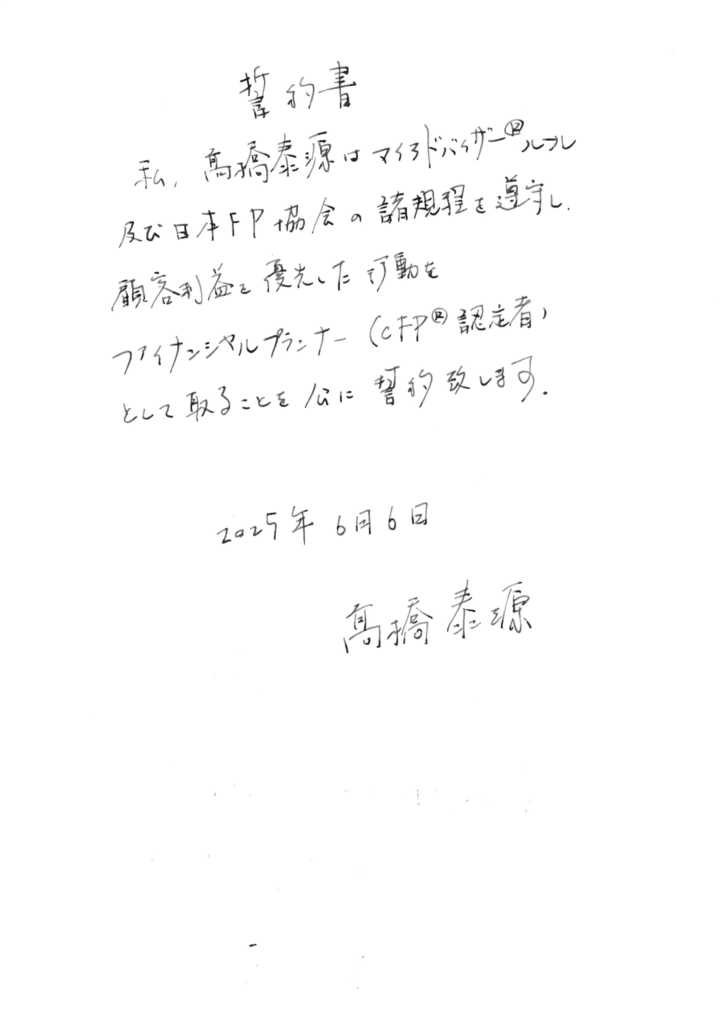 誓約書
私、髙橋泰源はマイアドバイザー®ルール
及び日本FP協会の諸規程を遵守し、
顧客利益を優先した行動を
ファイナンシャルプランナー(CFP®認定者)
として取ることを公に誓約致します。
2025年6月6日
髙橋泰源